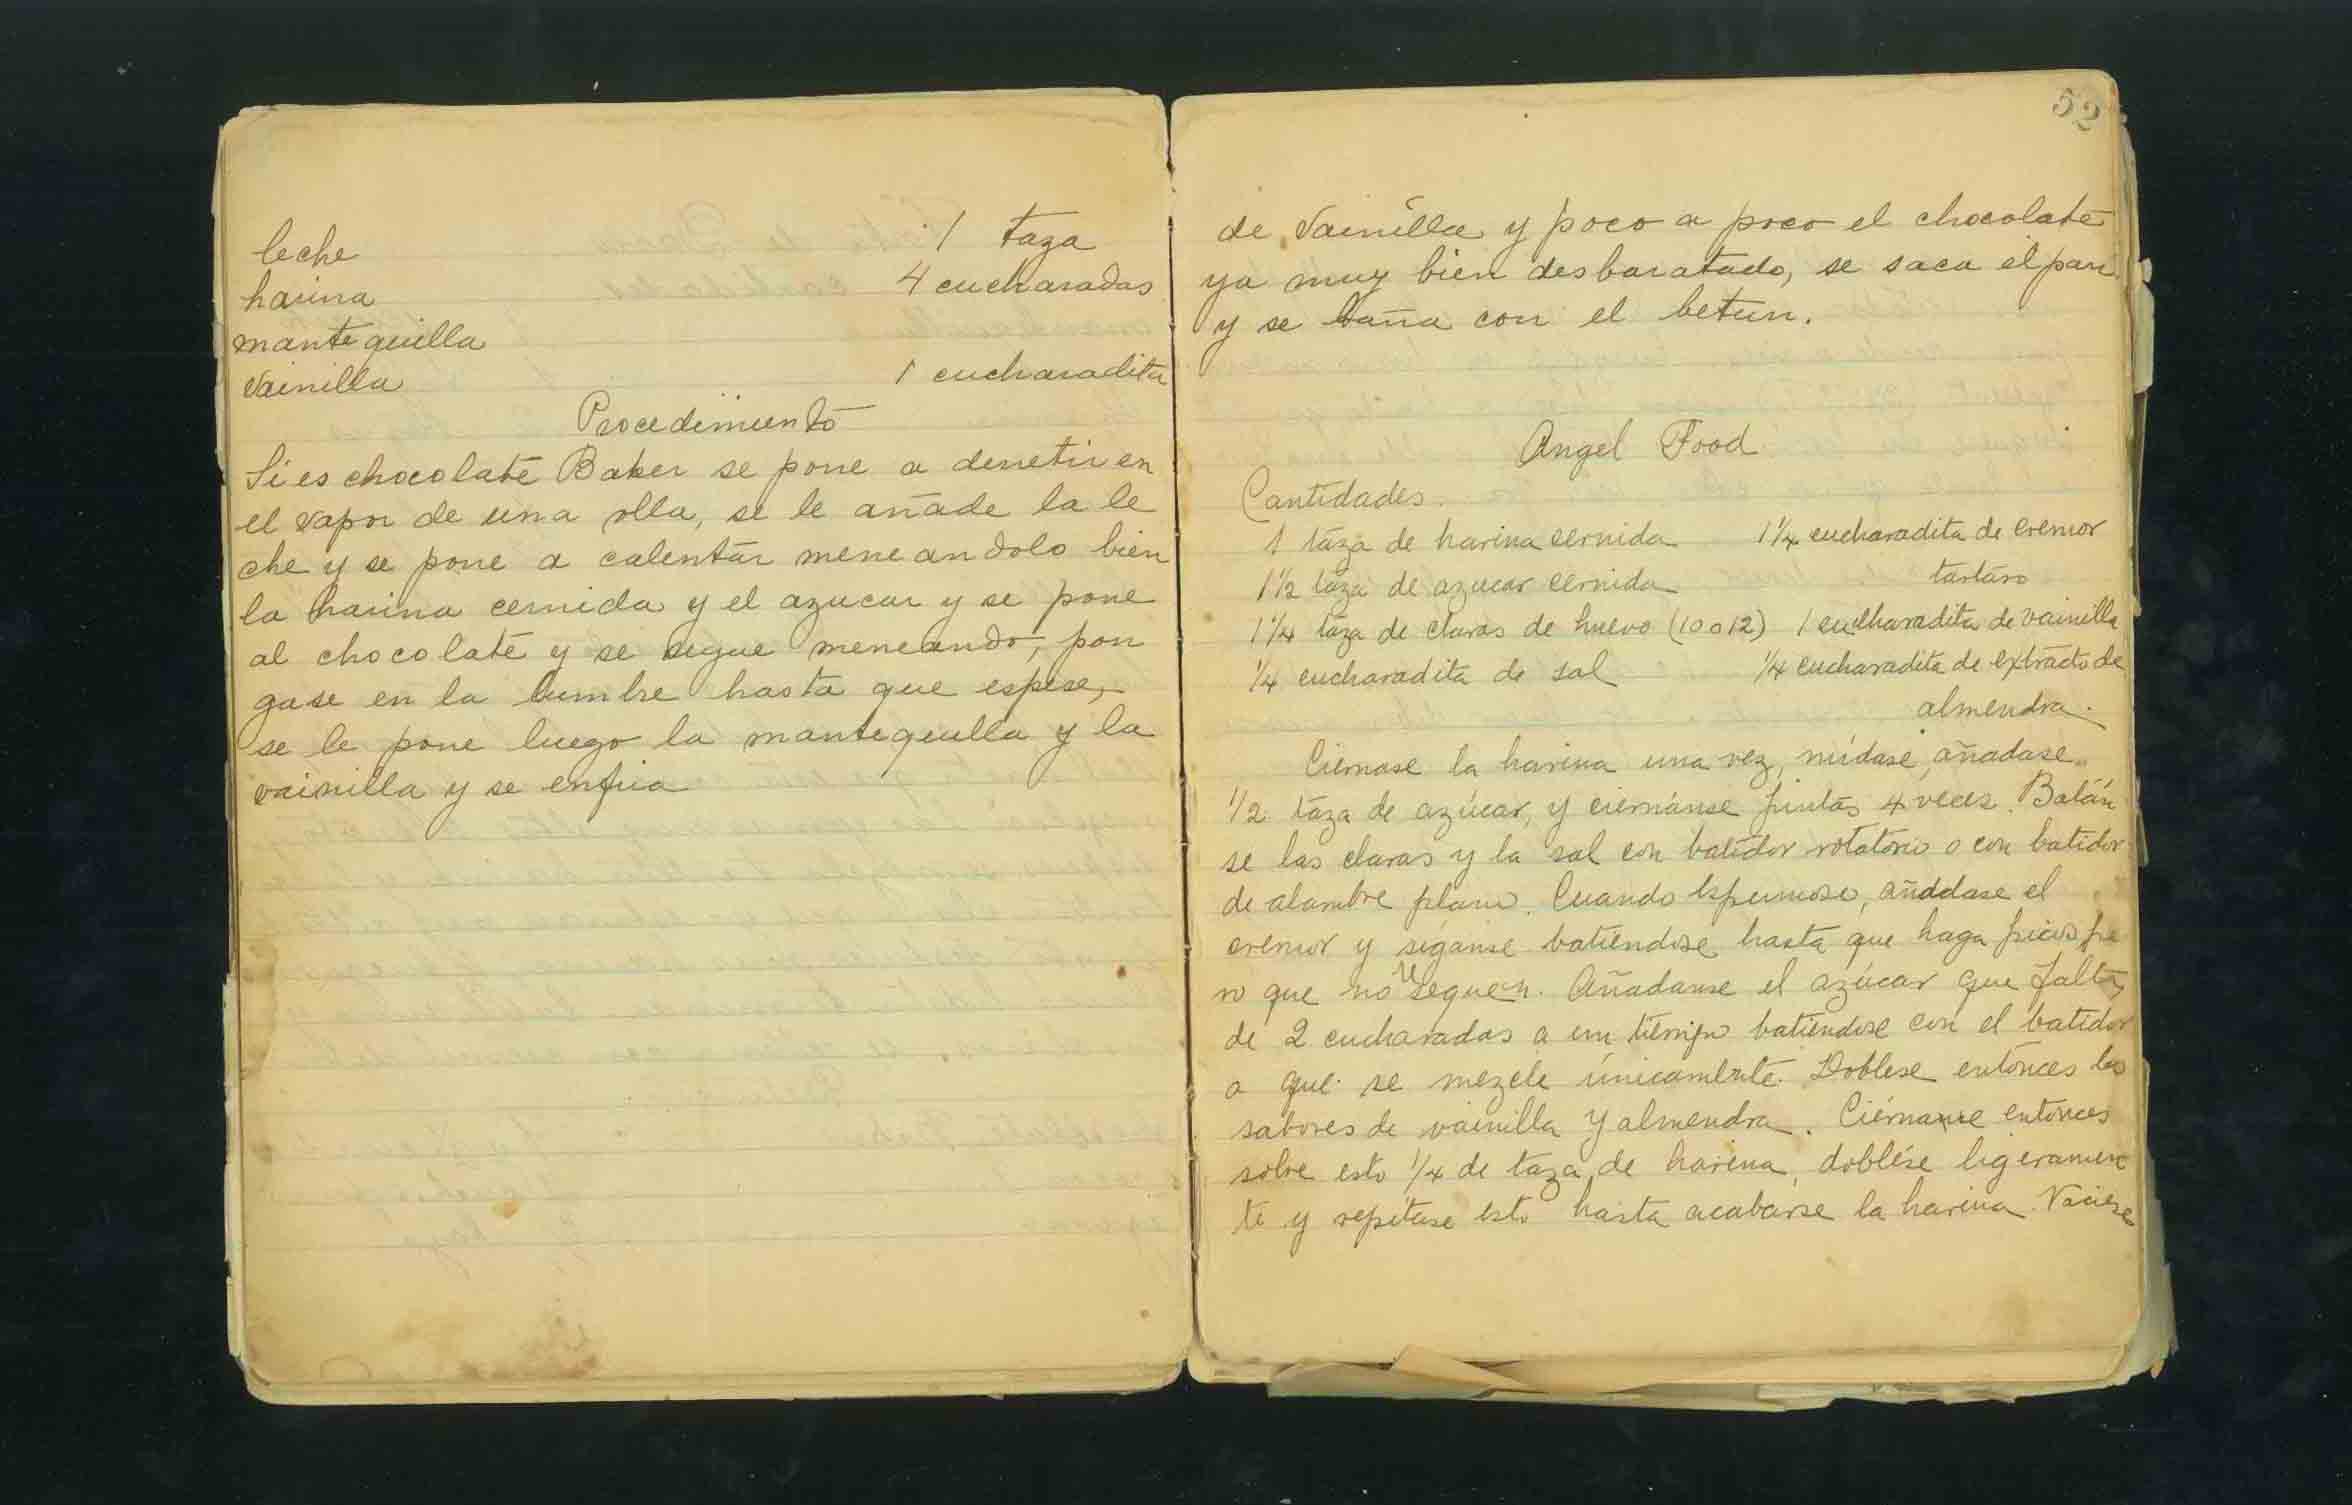 leche 1 taza
harina 4 cucharadas
mantequilla
vainilla 1 cucharadita
Procedimiento
Si es chocolate Baker se pone a derretir en
el vapor de una olla, se le añade la le
che y se pone a calentar meneandolo bien
la harina cernida y el azucar y se pone
al chocolate y se sigue meneando, pon
gase en la lumbre hasta que espese,
se le pone luego la mantequilla y la
vainilla y se enfria
52
de vainilla y poco a poco el chocolate
ya muy bien desbaratado, se saca el pan
y se baña con el betun.
Angel Food
Cantidades.
1 taza de harina cernida 1 1/4 cucharadita de cremor
1 1/2 taza de azucar cernida tartaro
1 1/4 taza de claras de huevo (10 o 12) 1 cucharadita de vainilla
1/4 cucharadita de sal 1/4 cucharadita de extracto de
almendra.
Ciernase la harina una vez, mídase, añadase
1/2 taza de azúcar, y ciernanse juntas 4 veces. Batán
se las claras y la sal con batidor rotatorio o con batidor
de alambre plano. Cuando espumoso, añádase el
cremor y síganse batiendose hasta que haga picos pe
ro que no se sequen. Añadanse el azúcar que falta,
de 2 cucharadas a un tiempo batiéndose con el batidor
a que se mezcle únicamente. Doblese entonces los
sabores de vainilla y almendra. Ciérnanse entonces
sobre esto 1/4 de taza de harina, doblése ligeramen
te y repitase esto hasta acabarse la harina. Vaciese